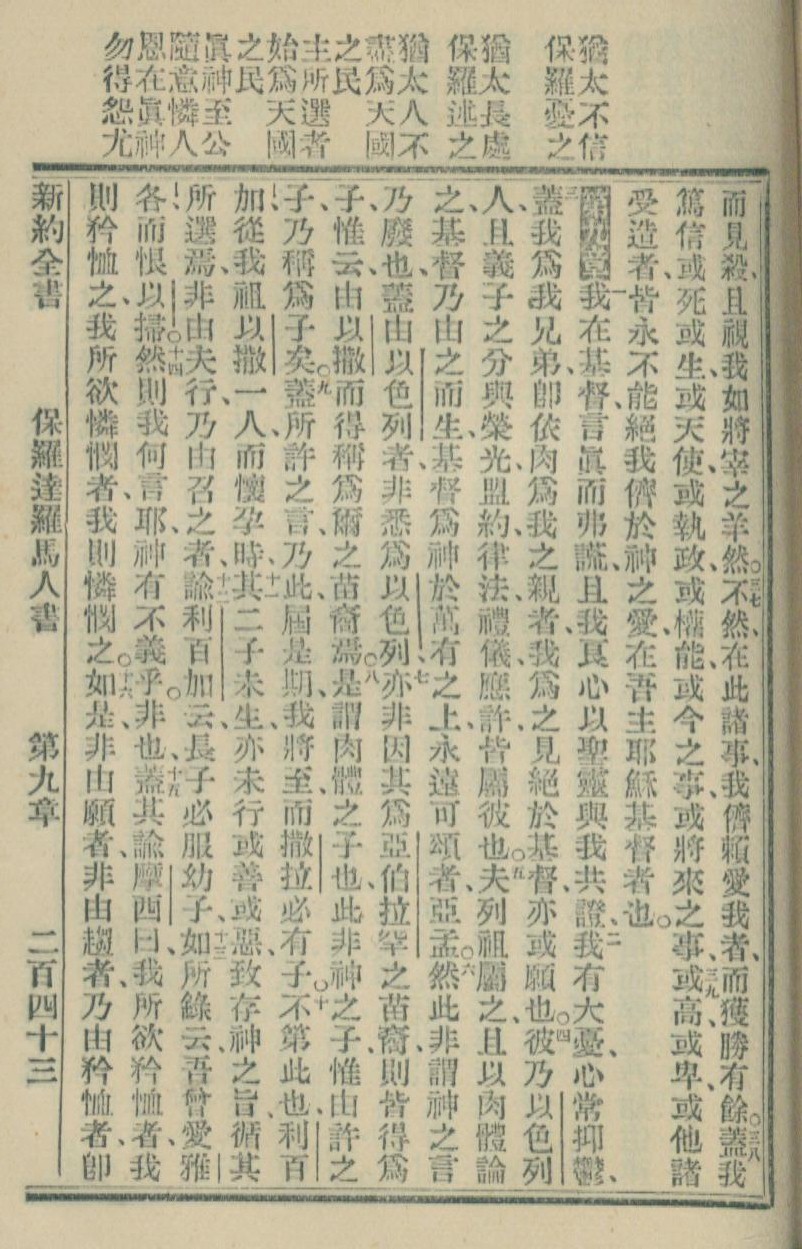 猶太不信
保羅憂之
猶太長處
保羅述之
猶太人不
盡爲天國
之民
主所選者
始爲天國
之民
眞神至公
隨意憐人
恩在眞神
勿得怨尤
而見殺、且視我如將宰之羊、○三七然不然、在此諸事、我儕賴愛我者、而獲勝有餘、○三八蓋我
篤信或死或生、或天使、或執政、或權能、或今之事、或將來之事、三九或高、或卑、或他諸
受造者、皆永不能絕我儕於神之愛、在吾主耶穌基督者也。
第九章一我在基督、言眞而弗謊、且我良心以聖靈與我共證、二我有大憂、心常抑鬱、
三蓋我爲我兄弟、卽依肉爲我之親者、我爲之見絕於基督、亦或願也、○四彼乃以色列
人、且義子之分、與榮光、盟約、律法、禮儀、應許、皆屬彼也、○五夫列祖屬之、且以肉體論
之、基督乃由之而生、基督爲神於萬有之上、永遠可頌者、亞孟、○六然此非謂神之言
乃廢也、蓋由以色列者、非悉爲以色列、七亦非因其爲亞伯拉罕之苗裔、則皆得爲
子、惟云、由以撒而得稱爲爾之苗裔焉、○八是謂肉體之子也、此非神之子、惟由許之
子、乃稱爲子矣、○九蓋所許之言、乃此、屆是期、我將至、而撒拉必有子、○十不第此也、利百
加從我祖以撒一人而懷孕時、十一其二子未生、亦未行或善或惡、致存神之旨、循其
所選焉、非由夫行、乃由召之者、十二諭利百加云、長子必服幼子、十三如所錄云、吾曾愛雅
各而恨以掃、○十四然則我何言耶、神有不義乎、非也、十五蓋其諭摩西曰、我所欲矜恤者、我
則矜恤之、我所欲憐憫者、我則憐憫之、○十六如是、非由願者、非由趨者、乃由矜恤者、卽
新約全書 保羅達羅馬人書 第九章 二百四十三